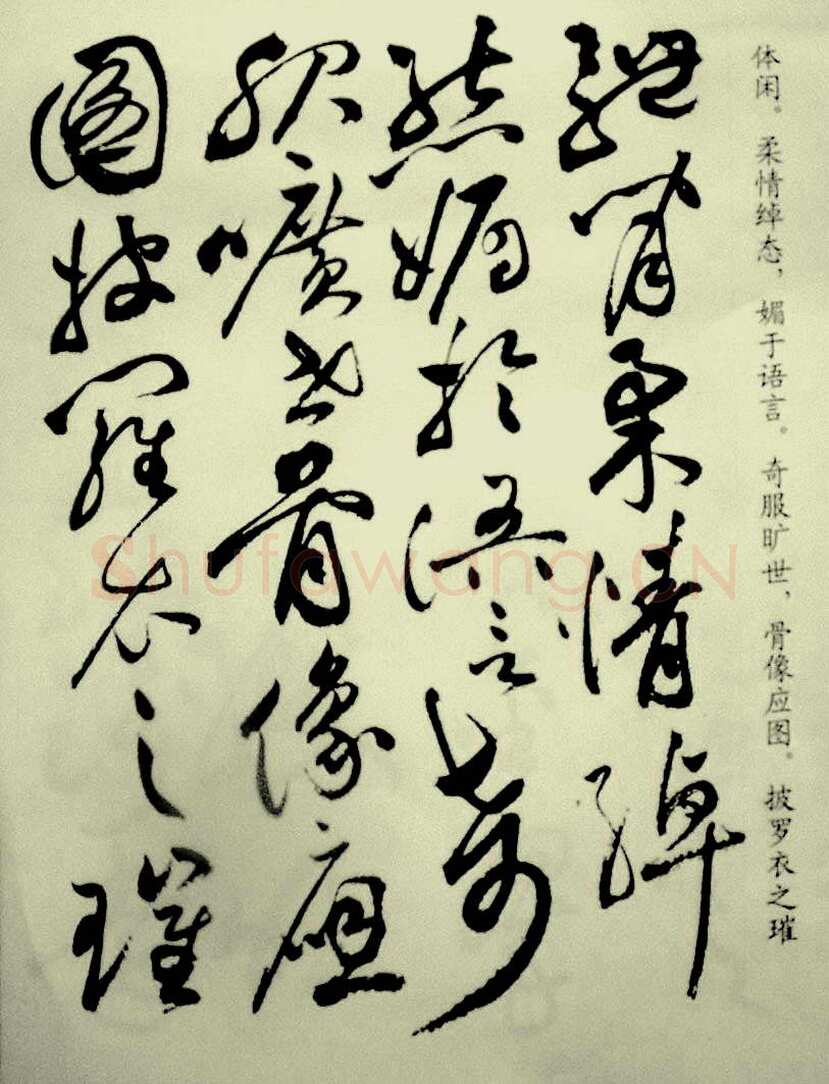 体闲。柔情绰态，媚于语言。奇服旷世，骨像应图。披罗衣之璀
體閒柔情綽
態媚於語言奇
服曠世骨像應
圖披羅衣之璀
Shufawang.CN